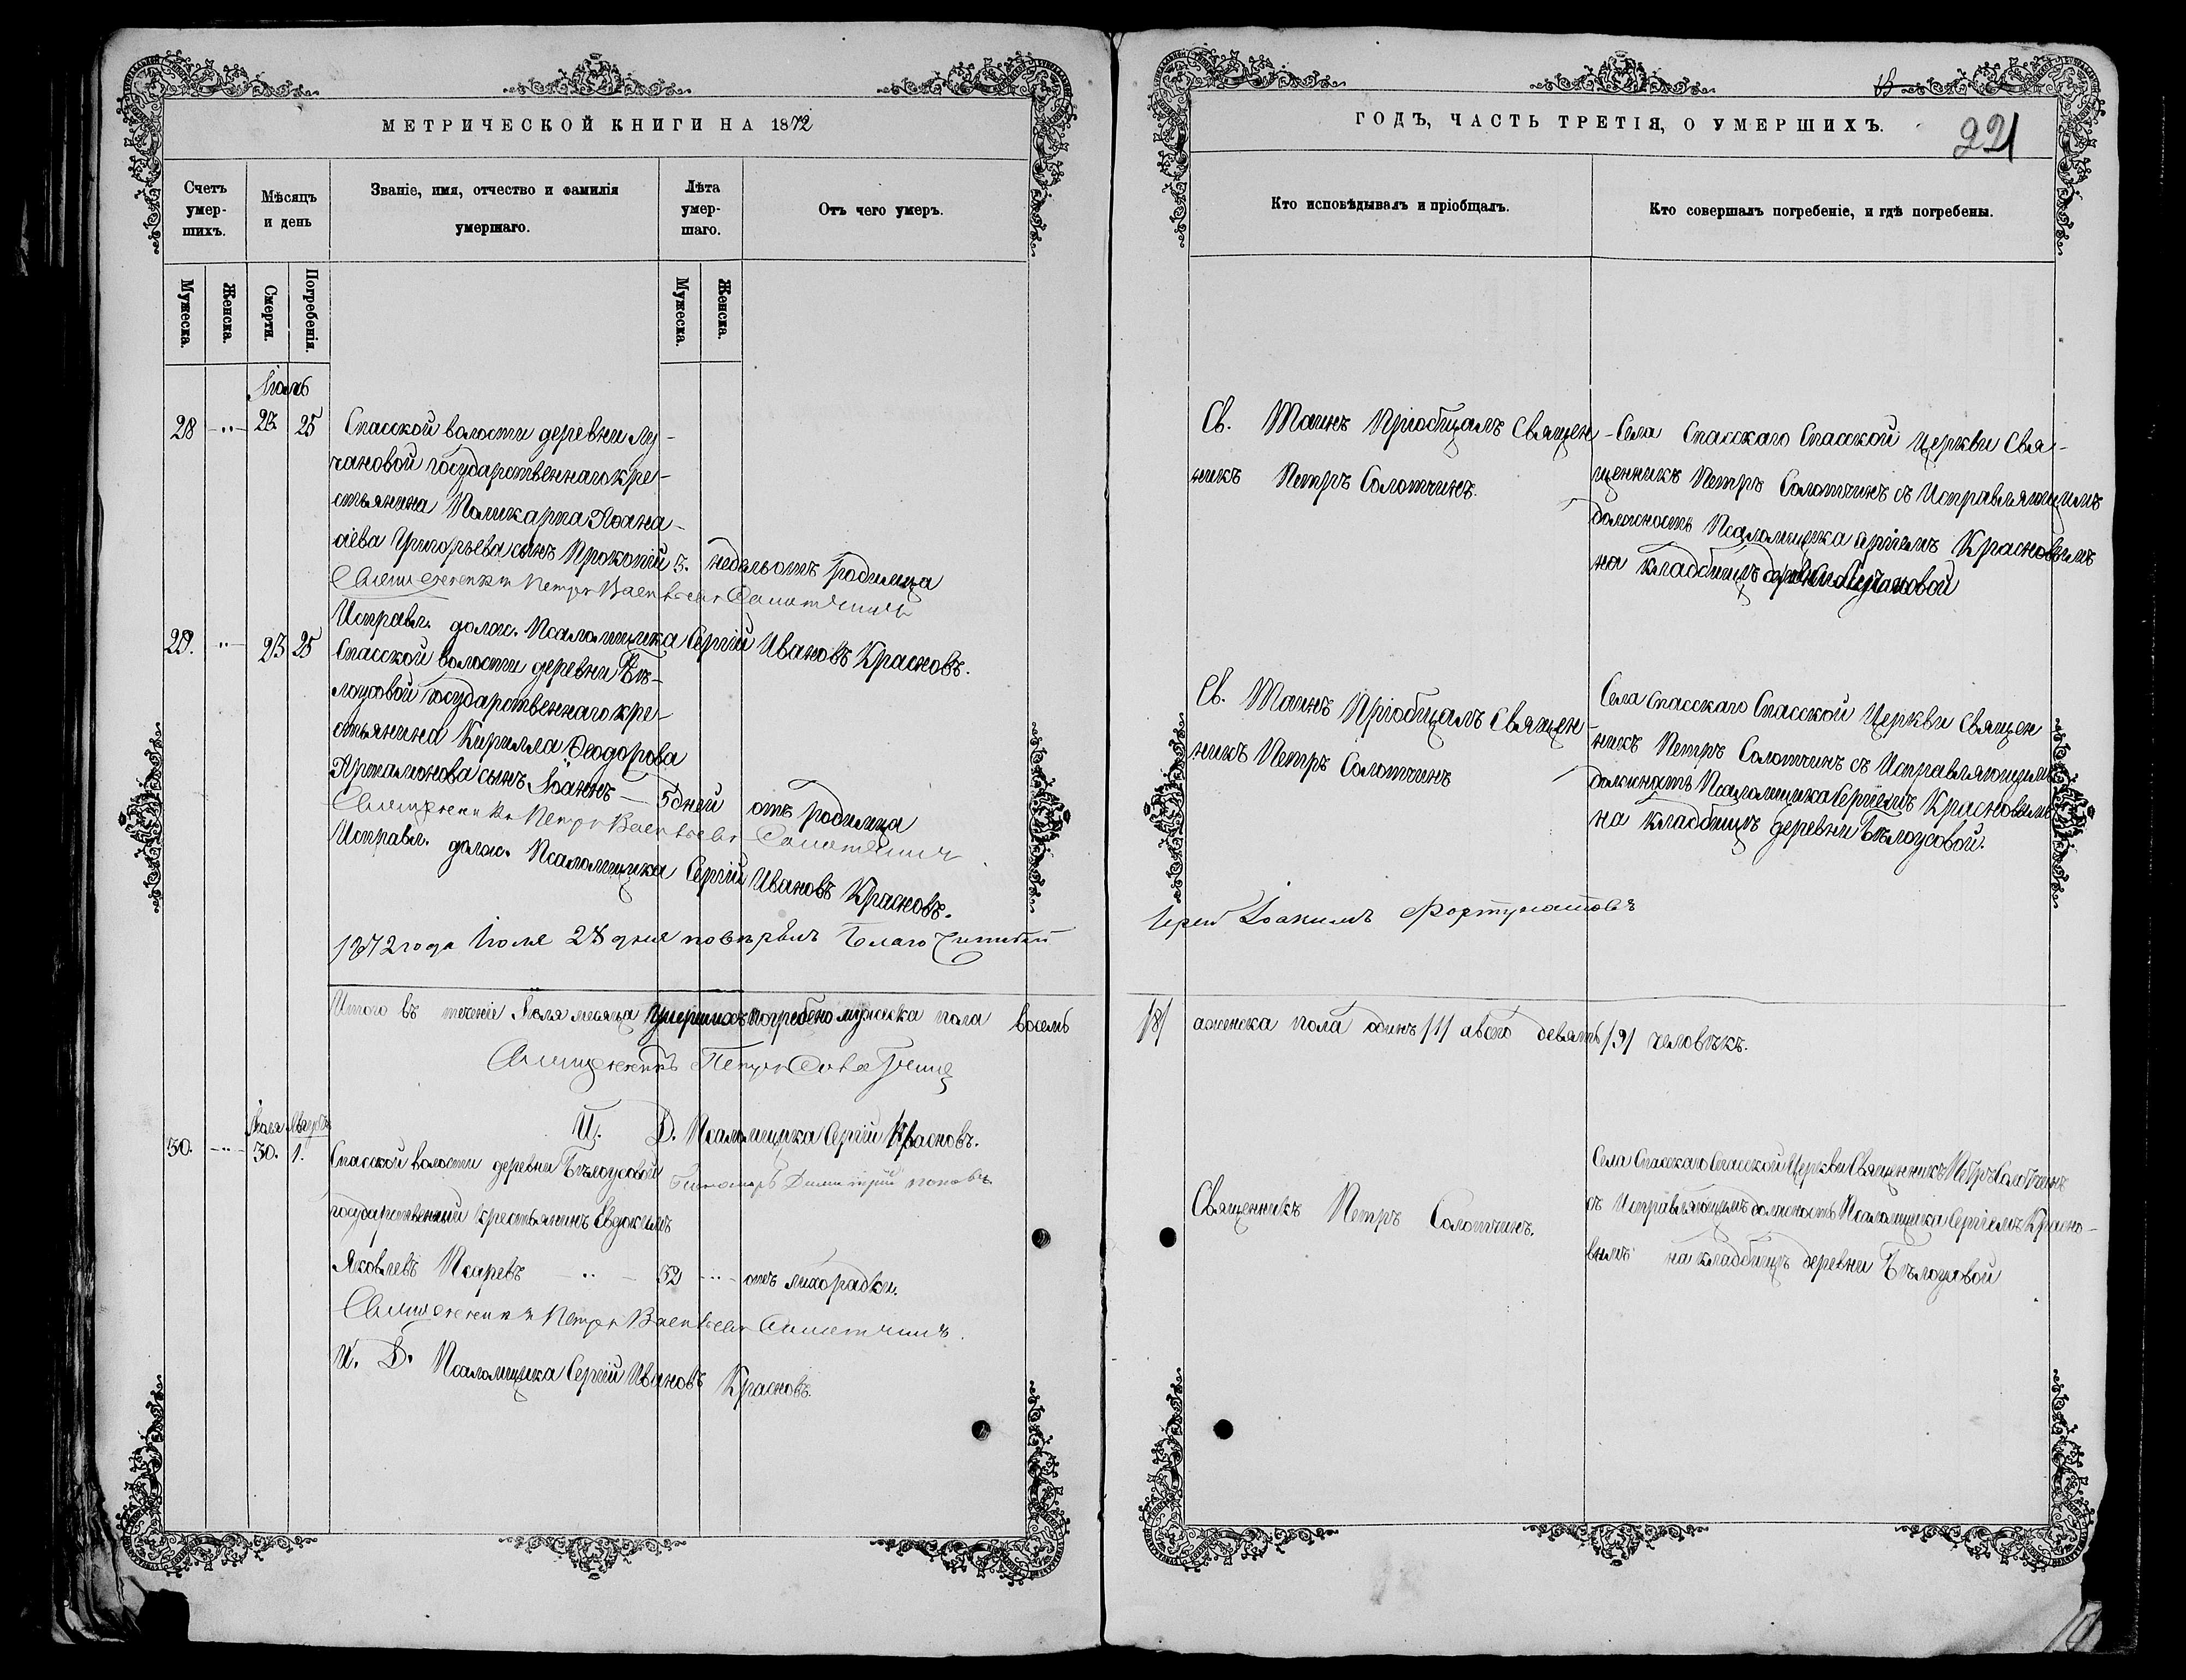 МЕТРИЧЕСКОЙ КНИГИ НА 1872
Счетъ умер-шихъ.
Мѣсяцъ и день
Званіе, имя, отчество и фамилія умершаго.
Лѣта умер-шаго.
Отъ чего умеръ.
Мужеска.
Женска.
Смерти.
Погребенія.
Мужеска.
Женска.
Іюль
28 25 Спасской волости деревни Лу-
чановой государственнаго кре-
стьянина Поликарпа Аѳана-
сіева Григорьева сынъ Прокопій 5. недѣль отъ родимца
Священникъ Петръ Васильевъ Солотчинъ
Исправл. долж. Псаломщика Сергій Ивановъ Красновъ.
29. 23 25 Спасской волости деревни Бѣ-
лоусовой государственнаго кре-
стьянина Кирилла Ѳеодорова
Артамонова сынъ Іоаннъ 5 дней отъ родимца
Священникъ Петръ Васильевъ Солотчинъ
Исправл. долж. Псаломщика Сергій Ивановъ Красновъ.
1872 года Іюля 28 дня повѣрялъ Благочинный
Итого въ теченіе Іюля месяца умершихъ погребено мужеска пола восемь
Священникъ Петръ Солотчинъ
И. Д. Псаломщика Сергій Красновъ.
Пономарь Димитрій Поповъ
Іюля Августа
30. 30. 1. Спасской волости деревни Бѣлоусовой
государственный крестьянинъ Евдокимъ
Яковлевъ Писаревъ 52 отъ лихорадки.
Священникъ Петръ Васильевъ Солотчинъ.
И. Д. Псаломщика Сергій Ивановъ Красновъ.
ГОДЪ, ЧАСТЬ ТРЕТІЯ, О УМЕРШИХЪ.
221
Кто исповѣдывалъ и пріобщалъ.
Кто совершалъ погребеніе, и гдѣ погребены.
Св. Таинъ Пріобщалъ Священ-
никъ Петръ Солотчинъ.
Села Спасскаго Спасской Церкви Свя-
щенникъ Петръ Солотчинъ съ Исправляющимъ
должность Псаломщика Сергіемъ Красновымъ
на кладбищѣ деревни Лучановой
Св. Таинъ Пріобщалъ Священ-
никъ Петръ Солотчинъ
Села Спасскаго Спасской Церкви Священ-
никъ Петръ Солотчинъ съ Исправляющимъ
должность Псаломщика Сергіемъ Красновымъ
на кладбищѣ деревни Бѣлоусовой.
Іерей Іоакимъ Фортунатовъ
/8/ а женска пола одинъ /1/ а всего девять /9/ человѣкъ.
Священникъ Петръ Солотчинъ.
Села Спасскаго Спасской Церкви Священникъ Петръ Солотчинъ
съ Исправляющимъ должность Псаломщика Сергіемъ Красно-
вымъ на кладбищѣ деревни Бѣлоусовой